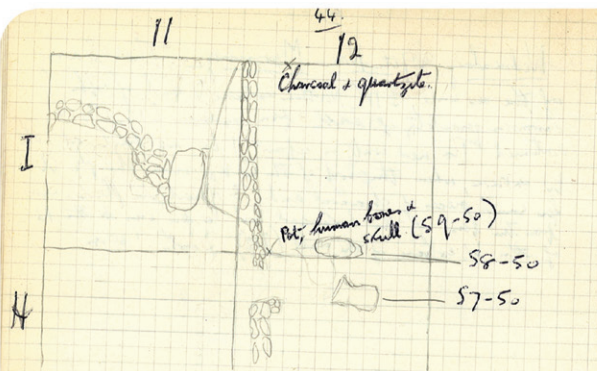 44.
11
12
Charcoal & quartzite.
I
Pot, human bones &
skull (59-50)
58-50
H
57-50